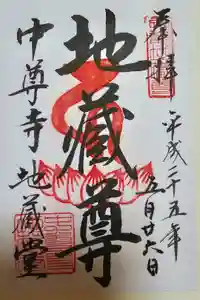 奉拝
平成二十五年
五月廿六日
地蔵尊
中尊寺 地蔵堂